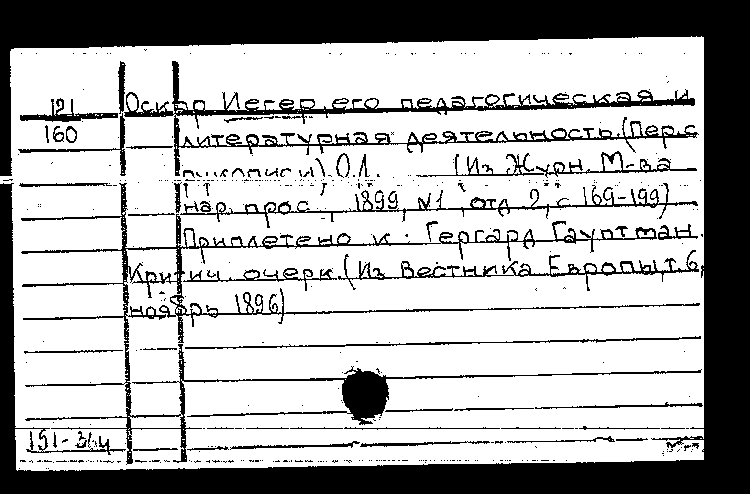 121 Оскар Иегер, его педагогическая и
160 литературная деятельность. (Пер. с
рукописи). О.Л. (Из Журн. М-ва
нар. прос., 1899, №1, отд. 2, с 169-199)
Приплетено к: Гергард Гауптман.
Критич. очерк. (Из Вестника Европы, т. 6,
ноябрь 1896)
151-